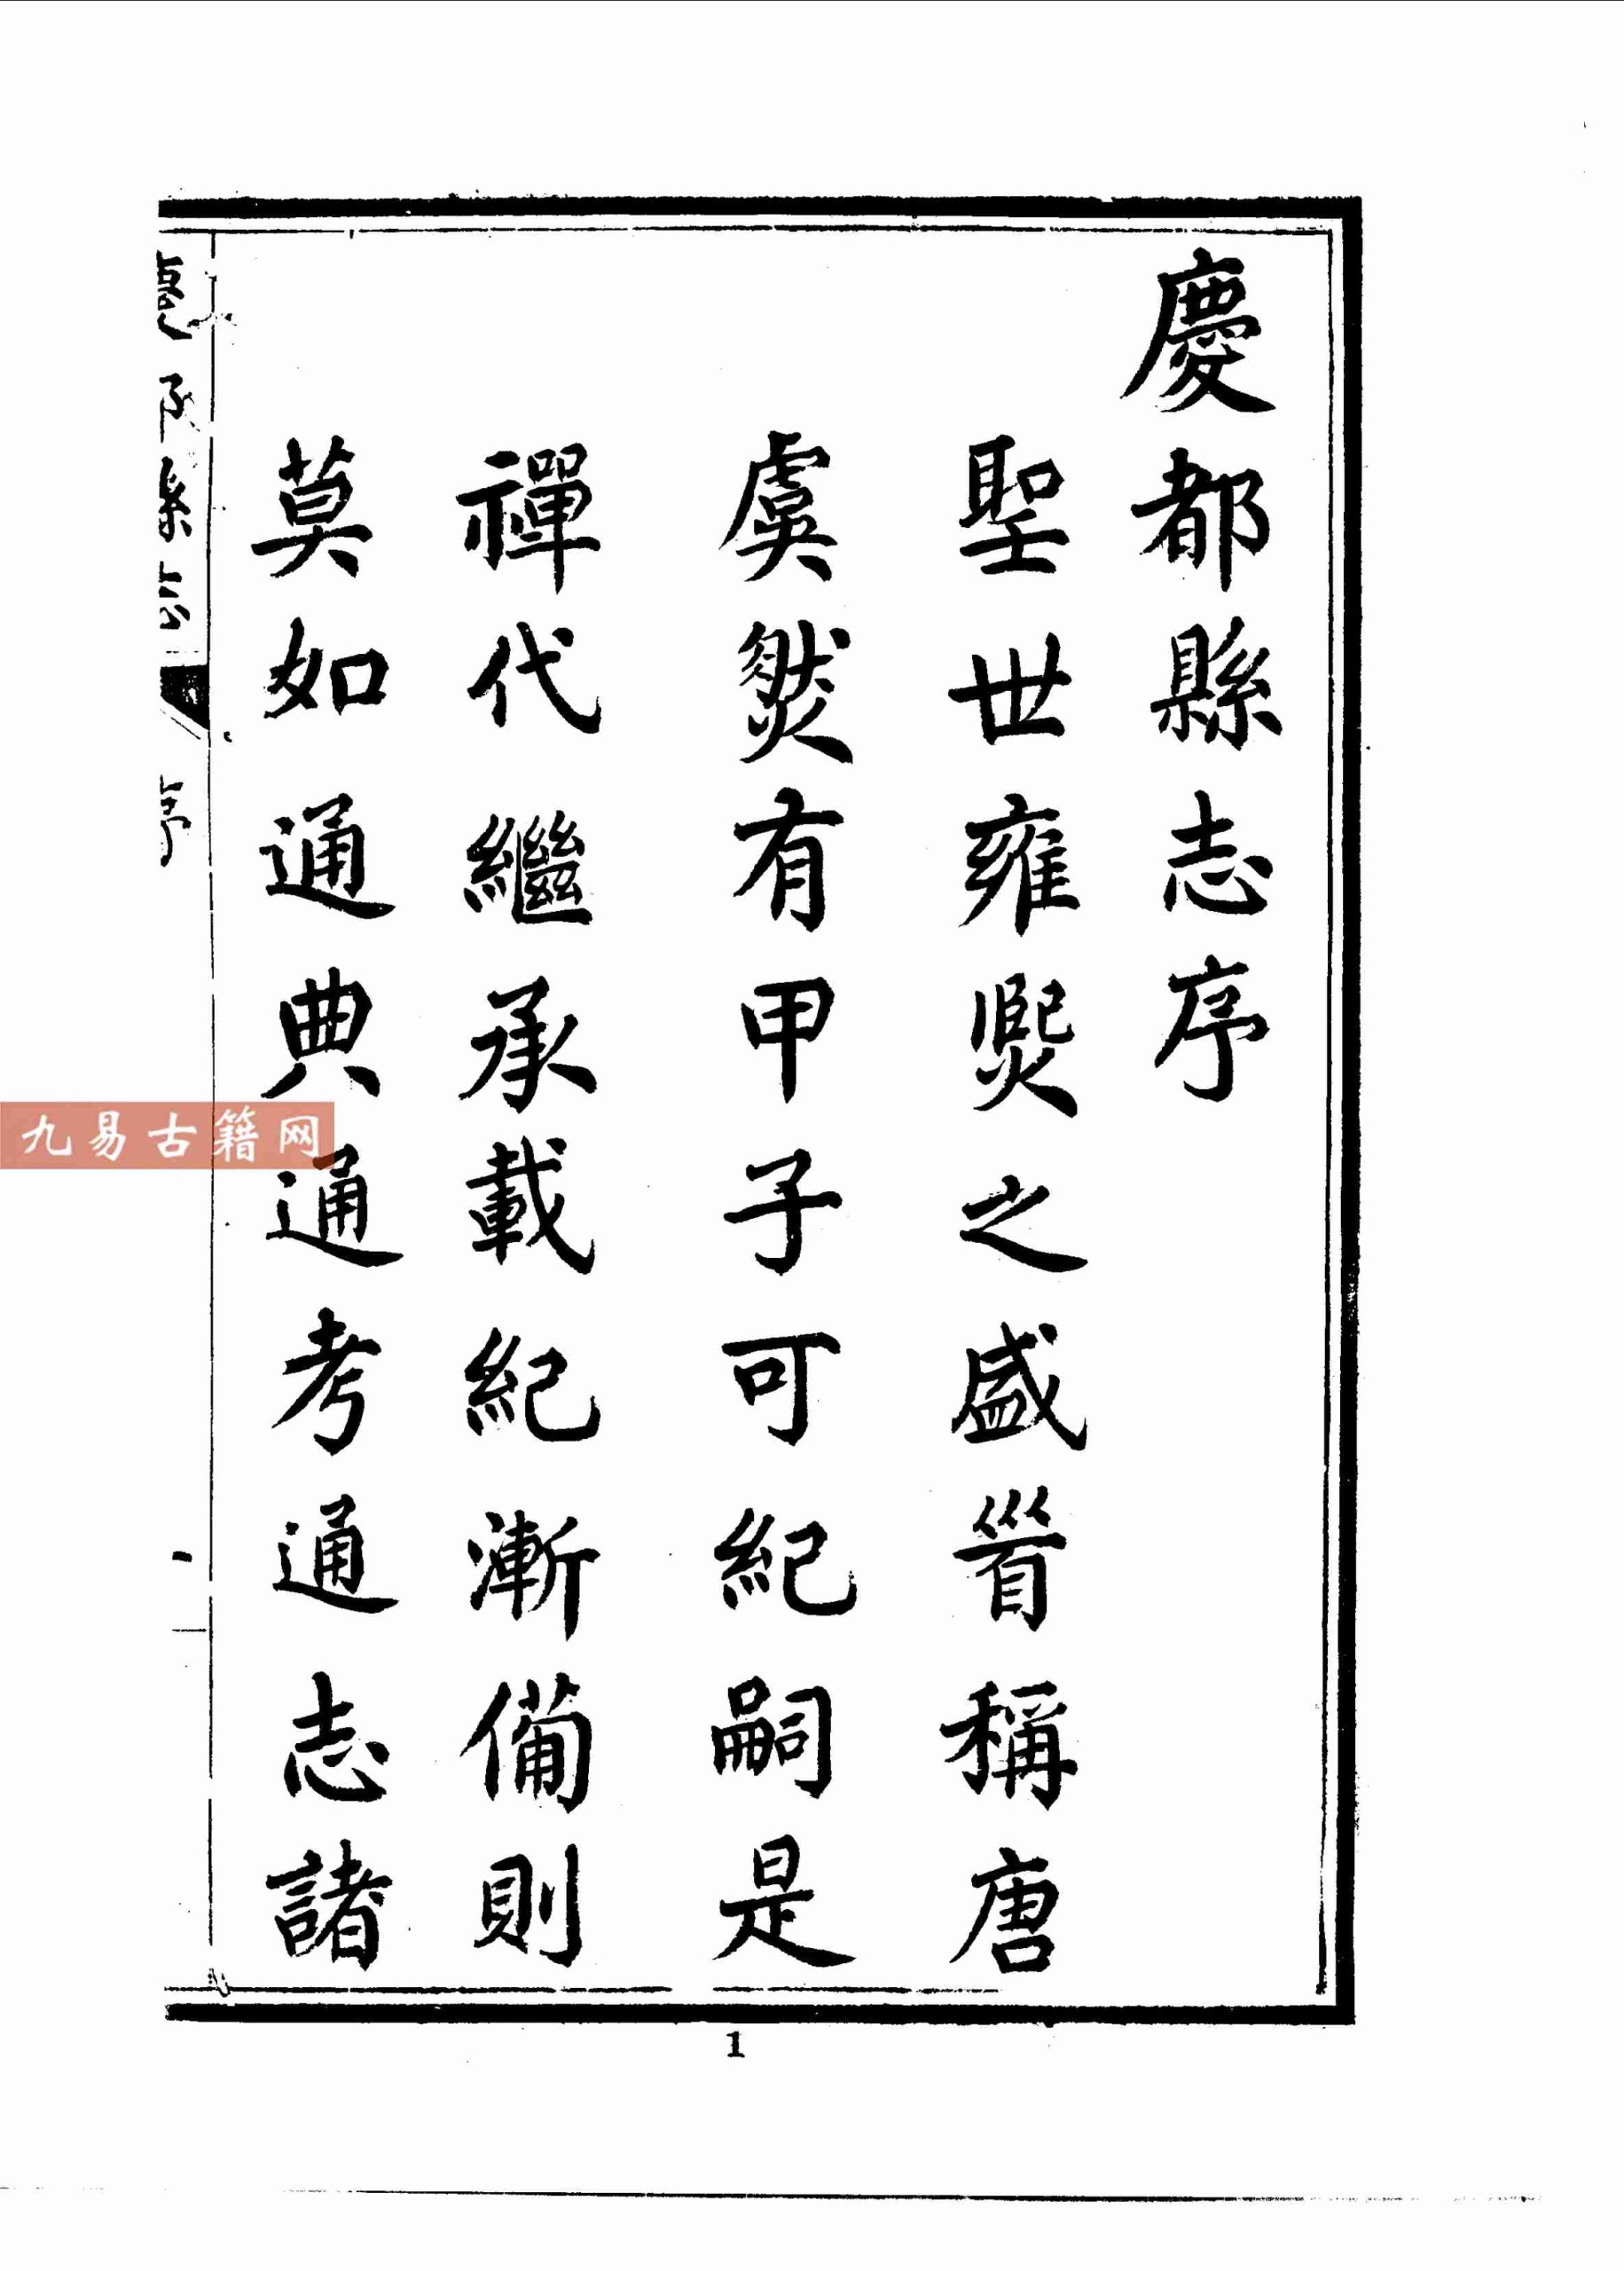 慶都縣志序
聖世雍熙之盛首稱唐
虞然有甲子可紀嗣是
禪代繼承載紀漸備則
莫如通典通考通志諸
慶都縣志
序
一
九易古籍网
1